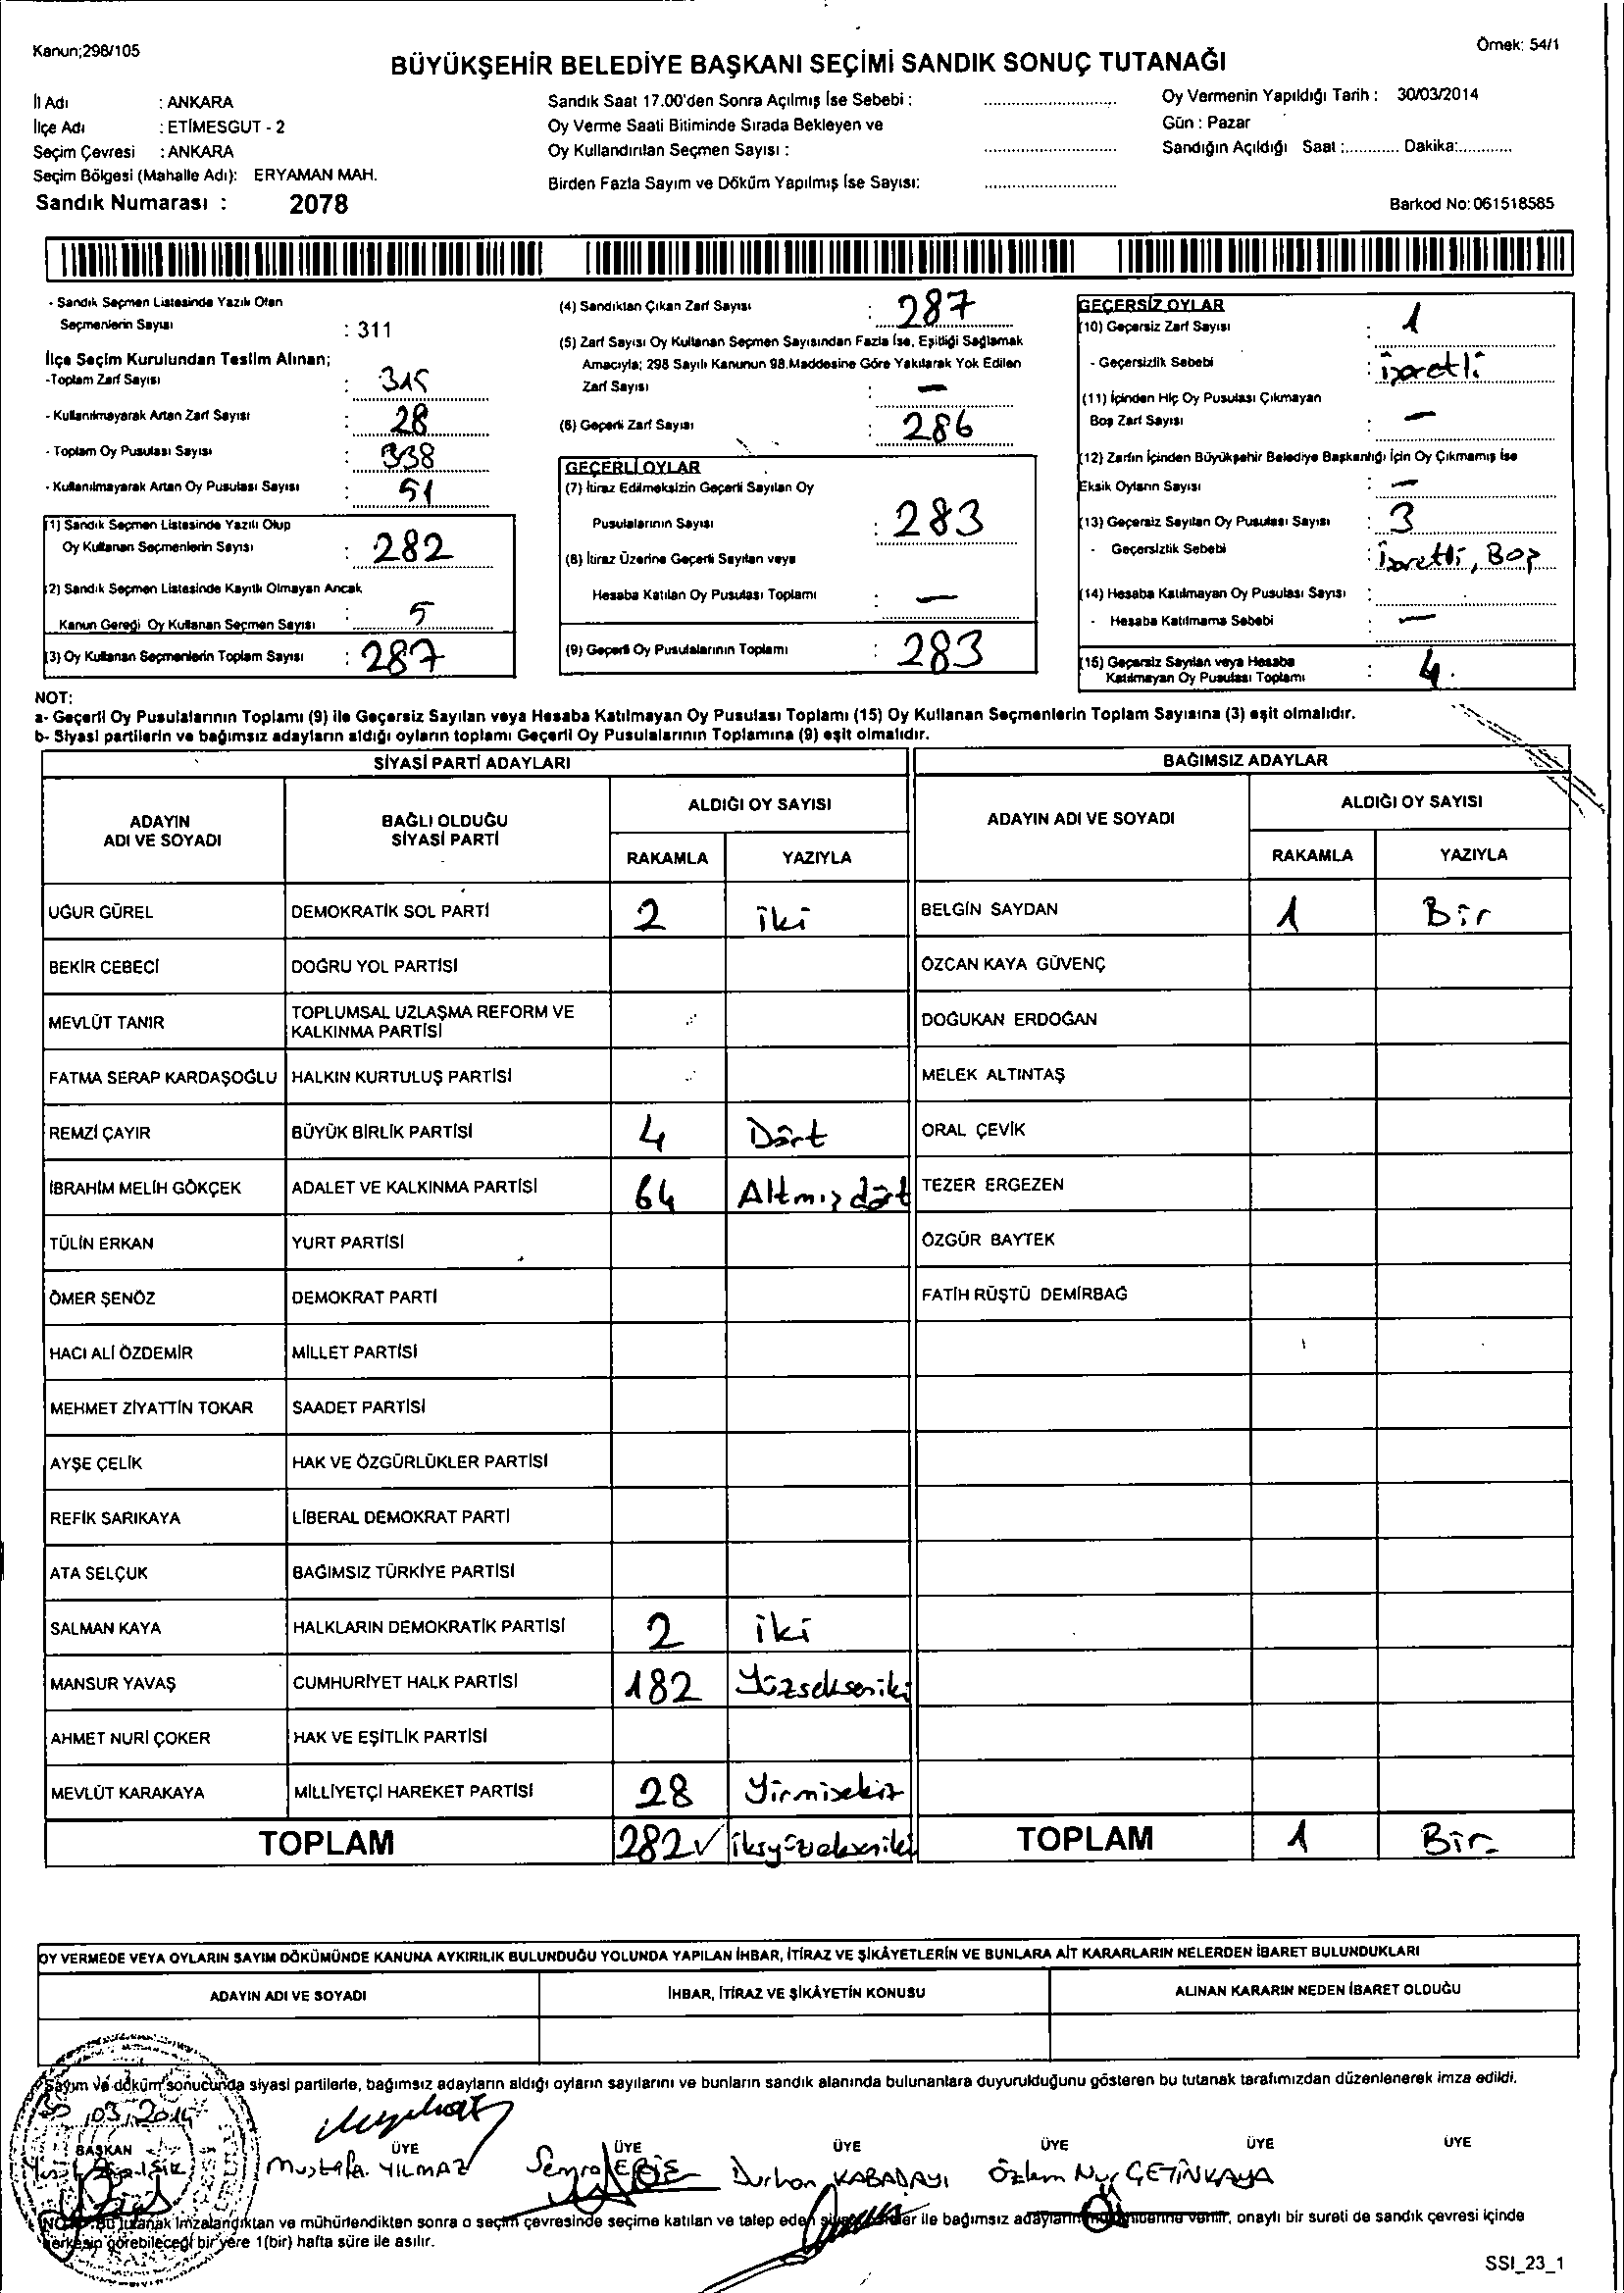 Kanun;298/105
Örnek: 54/1
BÜYÜKŞEHİR BELEDİYE BAŞKANI SEÇİMİ SANDIK SONUÇ TUTANAĞI
İl Adı : ANKARA
İlçe Adı : ETİMESGUT - 2
Seçim Çevresi : ANKARA
Seçim Bölgesi (Mahalle Adı): ERYAMAN MAH.
Sandık Numarası : 2078
Sandık Saat 17.00'den Sonra Açılmış İse Sebebi :
Oy Verme Saati Bitiminde Sırada Bekleyen ve
Oy Kullandırılan Seçmen Sayısı :
Birden Fazla Sayım ve Döküm Yapılmış İse Sayısı:
Oy Vermenin Yapıldığı Tarih : 30/03/2014
Gün : Pazar
Sandığın Açıldığı Saat :............ Dakika:............
Barkod No: 061518585
- Sandık Seçmen Listesinde Yazılı Olan
Seçmenlerin Sayısı : 311
İlçe Seçim Kurulundan Teslim Alınan;
-Toplam Zarf Sayısı : 315
- Kullanılmayarak Artan Zarf Sayısı : 28
- Toplam Oy Pusulası Sayısı : 338
- Kullanılmayarak Artan Oy Pusulası Sayısı : 51
(1) Sandık Seçmen Listesinde Yazılı Olup
Oy Kullanan Seçmenlerin Sayısı : 282
(2) Sandık Seçmen Listesinde Kayıtlı Olmayan Ancak
Kanun Gereği Oy Kullanan Seçmen Sayısı : 5
(3) Oy Kullanan Seçmenlerin Toplam Sayısı : 287
(4) Sandıktan Çıkan Zarf Sayısı : 287
(5) Zarf Sayısı Oy Kullanan Seçmen Sayısından Fazla İse, Eşitliği Sağlamak
Amacıyla; 298 Sayılı Kanunun 98.Maddesine Göre Yakılarak Yok Edilen
Zarf Sayısı : —
(6) Geçerli Zarf Sayısı : 286
GEÇERLİ OYLAR
(7) İtiraz Edilmeksizin Geçerli Sayılan Oy
Pusulalarının Sayısı : 283
(8) İtiraz Üzerine Geçerli Sayılan veya
Hesaba Katılan Oy Pusulası Toplamı : —
(9) Geçerli Oy Pusulalarının Toplamı : 283
GEÇERSİZ OYLAR
(10) Geçersiz Zarf Sayısı : 1
- Geçersizlik Sebebi : işaretli
(11) İçinden Hiç Oy Pusulası Çıkmayan
Boş Zarf Sayısı : —
(12) Zarfın İçinden Büyükşehir Belediye Başkanlığı İçin Oy Çıkmamış İse
Eksik Oyların Sayısı : —
(13) Geçersiz Sayılan Oy Pusulası Sayısı : 3
- Geçersizlik Sebebi : İşaretli, Boş
(14) Hesaba Katılmayan Oy Pusulası Sayısı :
- Hesaba Katılmama Sebebi : —
(15) Geçersiz Sayılan veya Hesaba
Katılmayan Oy Pusulası Toplamı : 4.
NOT:
a- Geçerli Oy Pusulalarının Toplamı (9) ile Geçersiz Sayılan veya Hesaba Katılmayan Oy Pusulası Toplamı (15) Oy Kullanan Seçmenlerin Toplam Sayısına (3) eşit olmalıdır.
b- Siyasi partilerin ve bağımsız adayların aldığı oyların toplamı Geçerli Oy Pusulalarının Toplamına (9) eşit olmalıdır.
SİYASİ PARTİ ADAYLARI
BAĞIMSIZ ADAYLAR
ADAYIN ADI VE SOYADI
BAĞLI OLDUĞU SİYASİ PARTİ
ALDIĞI OY SAYISI
RAKAMLA YAZIYLA
ADAYIN ADI VE SOYADI
ALDIĞI OY SAYISI
RAKAMLA YAZIYLA
UĞUR GÜREL DEMOKRATİK SOL PARTİ 2 iki BELGİN SAYDAN 1 Bir
BEKİR CEBECİ DOĞRU YOL PARTİSİ ÖZCAN KAYA GÜVENÇ
MEVLÜT TANIR TOPLUMSAL UZLAŞMA REFORM VE KALKINMA PARTİSİ DOĞUKAN ERDOĞAN
FATMA SERAP KARDAŞOĞLU HALKIN KURTULUŞ PARTİSİ MELEK ALTINTAŞ
REMZİ ÇAYIR BÜYÜK BİRLİK PARTİSİ 4 Dört ORAL ÇEVİK
İBRAHİM MELİH GÖKÇEK ADALET VE KALKINMA PARTİSİ 64 Altmış dört TEZER ERGEZEN
TÜLİN ERKAN YURT PARTİSİ ÖZGÜR BAYTEK
ÖMER ŞENÖZ DEMOKRAT PARTİ FATİH RÜŞTÜ DEMİRBAĞ
HACI ALİ ÖZDEMİR MİLLET PARTİSİ
MEHMET ZİYATTİN TOKAR SAADET PARTİSİ
AYŞE ÇELİK HAK VE ÖZGÜRLÜKLER PARTİSİ
REFİK SARIKAYA LİBERAL DEMOKRAT PARTİ
ATA SELÇUK BAĞIMSIZ TÜRKİYE PARTİSİ
SALMAN KAYA HALKLARIN DEMOKRATİK PARTİSİ 2 iki
MANSUR YAVAŞ CUMHURİYET HALK PARTİSİ 182 Yüzsekseniki
AHMET NURİ ÇOKER HAK VE EŞİTLİK PARTİSİ
MEVLÜT KARAKAYA MİLLİYETÇİ HAREKET PARTİSİ 28 Yirmisekiz
TOPLAM 282 ikiyüzsekseniki TOPLAM 1 Bir
OY VERMEDE VEYA OYLARIN SAYIM DÖKÜMÜNDE KANUNA AYKIRILIK BULUNDUĞU YOLUNDA YAPILAN İHBAR, İTİRAZ VE ŞİKÂYETLERİN VE BUNLARA AİT KARARLARIN NELERDEN İBARET BULUNDUKLARI
ADAYIN ADI VE SOYADI İHBAR, İTİRAZ VE ŞİKÂYETİN KONUSU ALINAN KARARIN NEDEN İBARET OLDUĞU
Sayım ve döküm sonucunda siyasi partilerle, bağımsız adayların aldığı oyların sayılarını ve bunların sandık alanında bulunanlara duyurulduğunu gösteren bu tutanak tarafımızdan düzenlenerek imza edildi.
30.03.2014
BAŞKAN ÜYE ÜYE ÜYE ÜYE ÜYE ÜYE
Mustafa YILMAZ Durhan KABADAYI Özlem Nur ÇETİNKAYA
NOT: Bu tutanak imzalandıktan ve mühürlendikten sonra o seçim çevresinde seçime katılan ve talep eden ile bağımsız adayların verilir, onaylı bir sureti de sandık çevresi içinde
herkesin görebileceği bir yere 1(bir) hafta süre ile asılır.
SSI_23_1